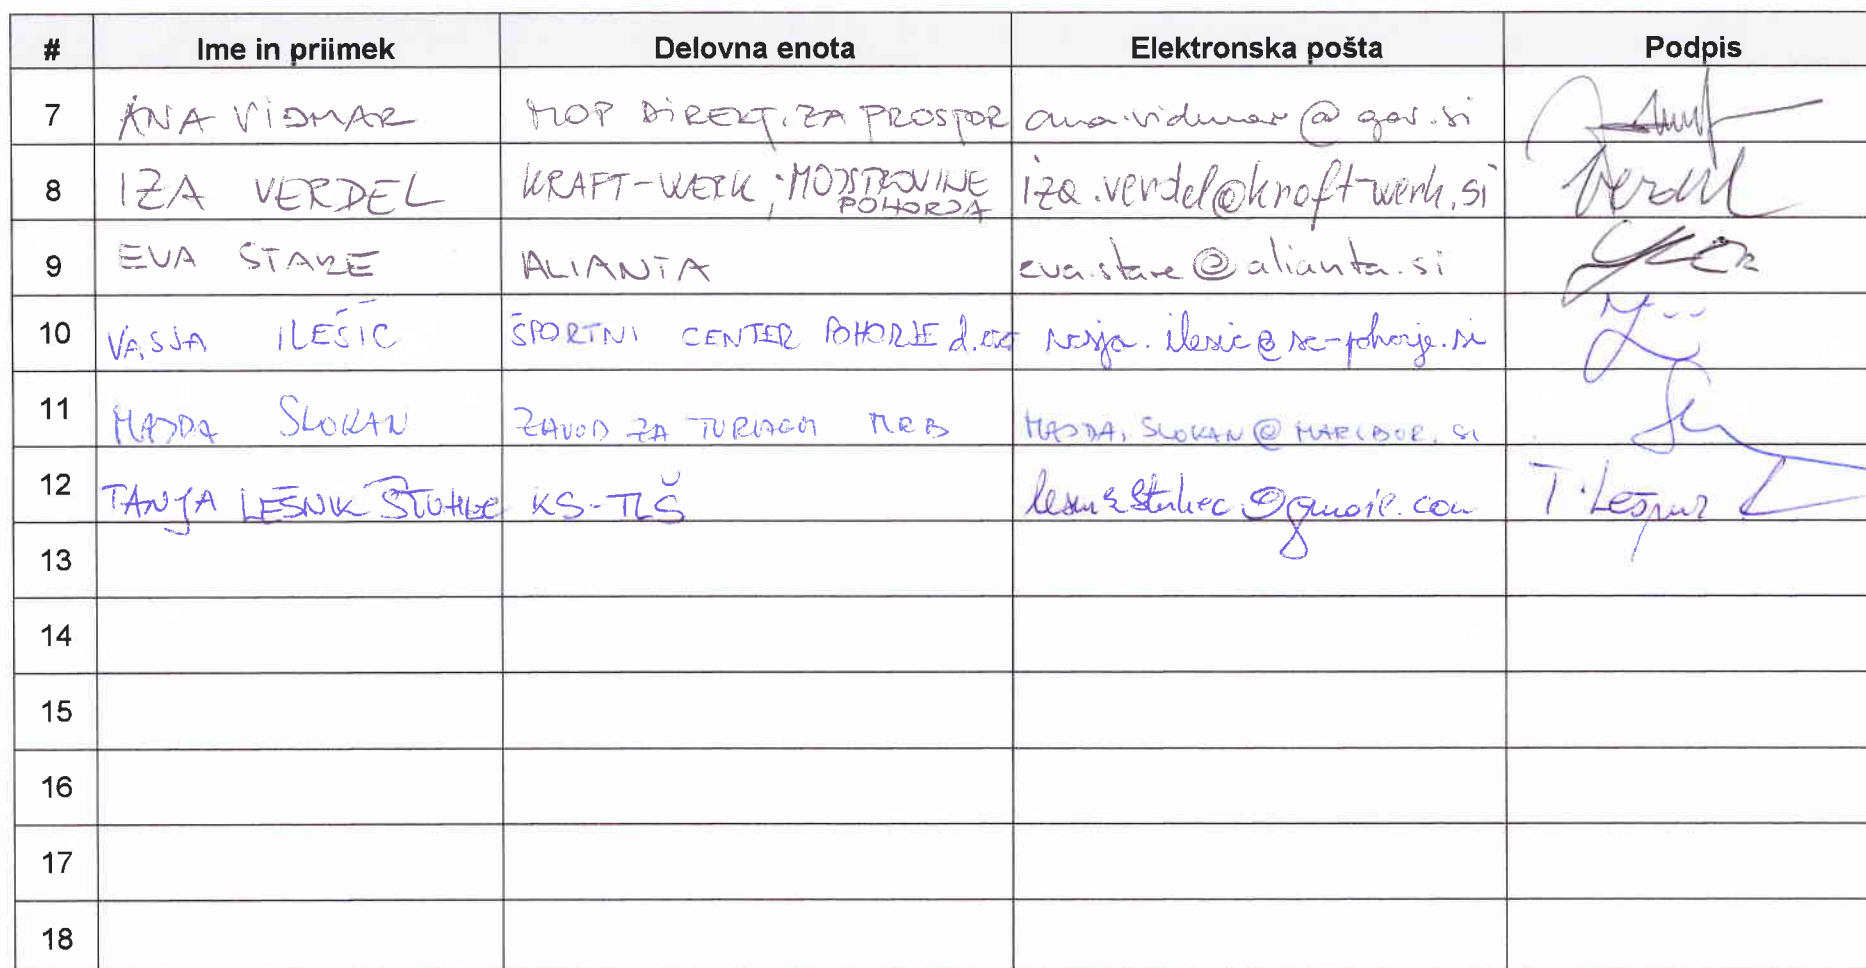 # Ime in priimek Delovna enota Elektronska pošta Podpis
7 ANA VIDMAR MOP DIREKT. ZA PROSTOR ana.vidmar@gov.si
8 IZA VERDEL KRAFT-WERK; MOJSTROVINE POHORJA iza.verdel@kraft-werk.si Verdel
9 EVA STARE ALIANTA eva.stare@alianta.si
10 VASJA ILEŠIČ ŠPORTNI CENTER POHORJE d.o.o. vasja.ilesic@sc-pohorje.si
11 MAJDA SLOKAN ZAVOD ZA TURIZEM MRB MAJDA.SLOKAN@MARIBOR.SI
12 TANJA LEŠNIK ŠTUHEC KS-TLŠ T. Lešnik
13
14
15
16
17
18